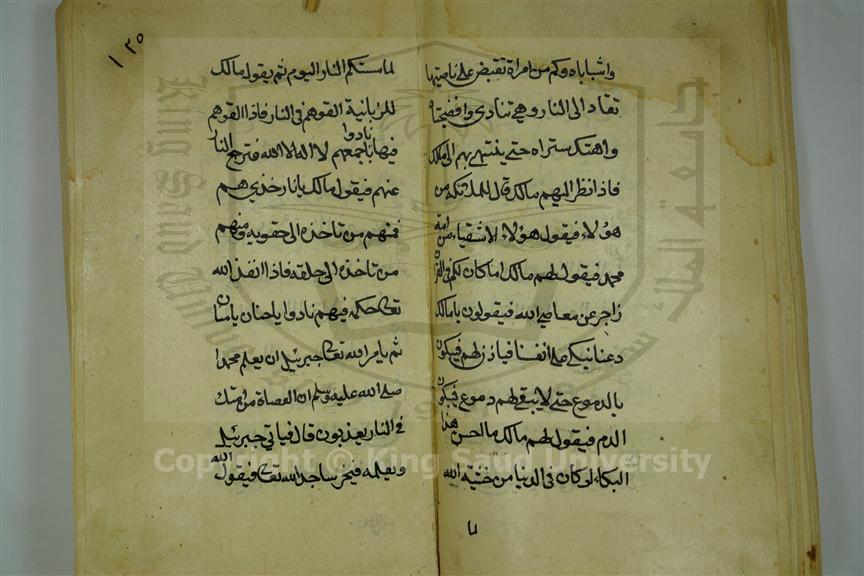 واشباباه وكم من امراة تقبض على ناصيتها
تقاد الى النار وهي تنادى وافضيحتاه
واهتك ستراه حتى ينتهى بهم الى مالك
فاذا نظر اليهم مالك قال للملائكة من
هؤلاء فيقول هؤلاء الاشقياء من امة
محمد فيقول لهم مالك اما كان لكم فى القران
زاجر عن معاصى الله فيقولون يا مالك
دعنا نبكى على انفسنا فياذن لهم فيبكون
بالدموع حتى لا يبقى لهم دموع فيبكون
الدم فيقول لهم مالك ما احسن هذا
البكاء لو كان فى الدنيا من خشية الله
لما
١٢٥
لما مستكم النار اليوم ثم يقول مالك
للزبانية القوهم فى النار فاذا القوهم
فيها نادوا باجمعهم لا اله الا الله فترجع النار
عنهم فيقول مالك يا نار خذي هم
فمنهم من تاخذه الى حقويه ومنهم
من تاخذه الى حلقه فاذا انفذ الله
تعالى حكمه فيهم نادوا يا حنان يا منان
ثم يامر الله تعالى جبرئيل ان يعلم محمدا
صلى الله عليه وسلم ان العصاة من امتك
فى النار يعذبون قال فياتي جبرئيل
ويعلمه فيخر ساجدا لله تعالى فيقول الله
Copyright © King Saud University
King Saud University
جامعة الملك سعود
1957